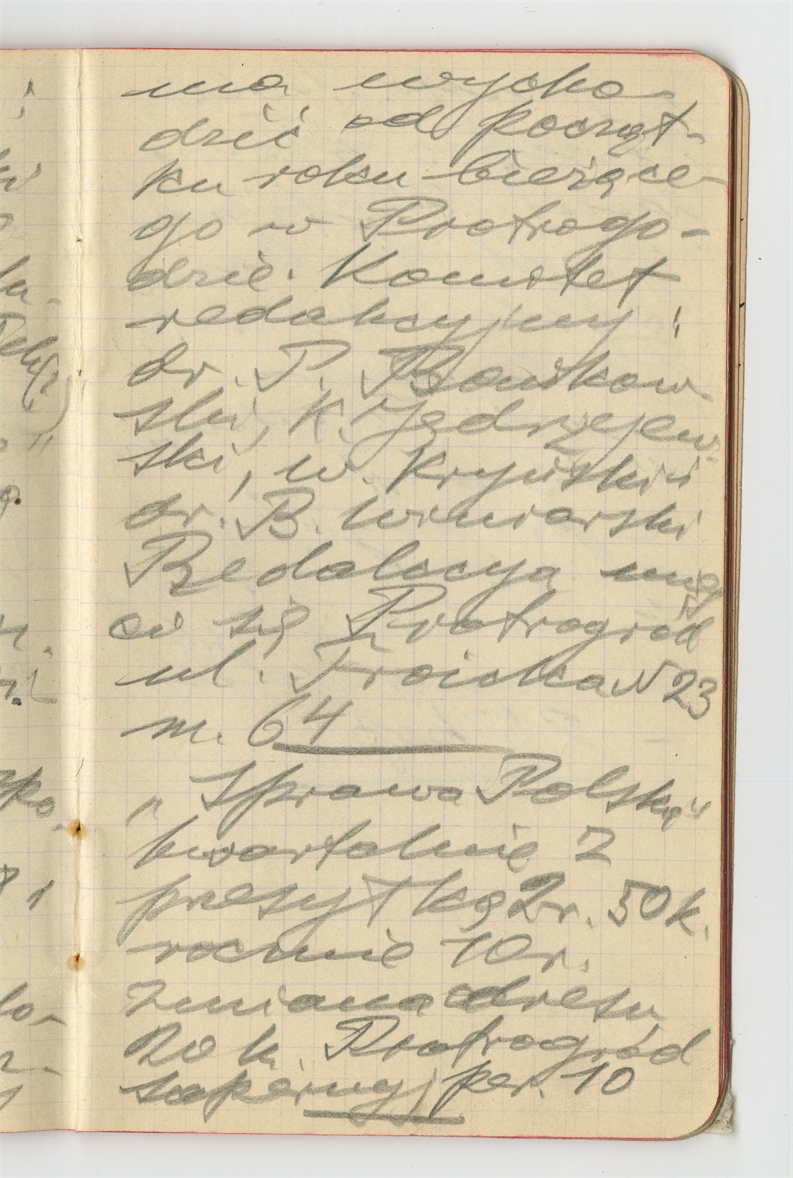 ma wycho-
dzić od począt-
ku roku bieżące-
go w Piotrogro-
dzie. Komitet
redakcyjny:
dr. P. Bańkow-
ski, K. Jędrzejew-
ski, W. Kryński i
dr. B. Winiarski
Redakcya mieś
ci się Piotrogród
ul. Troicka N 23
m. 64
„Sprawa Polska"
kwartalnie z
przesyłką 2r. 50 k.
rocznie 10r.
zmiana adresu
20 k. Piotrogród
Sapernyj per. 10